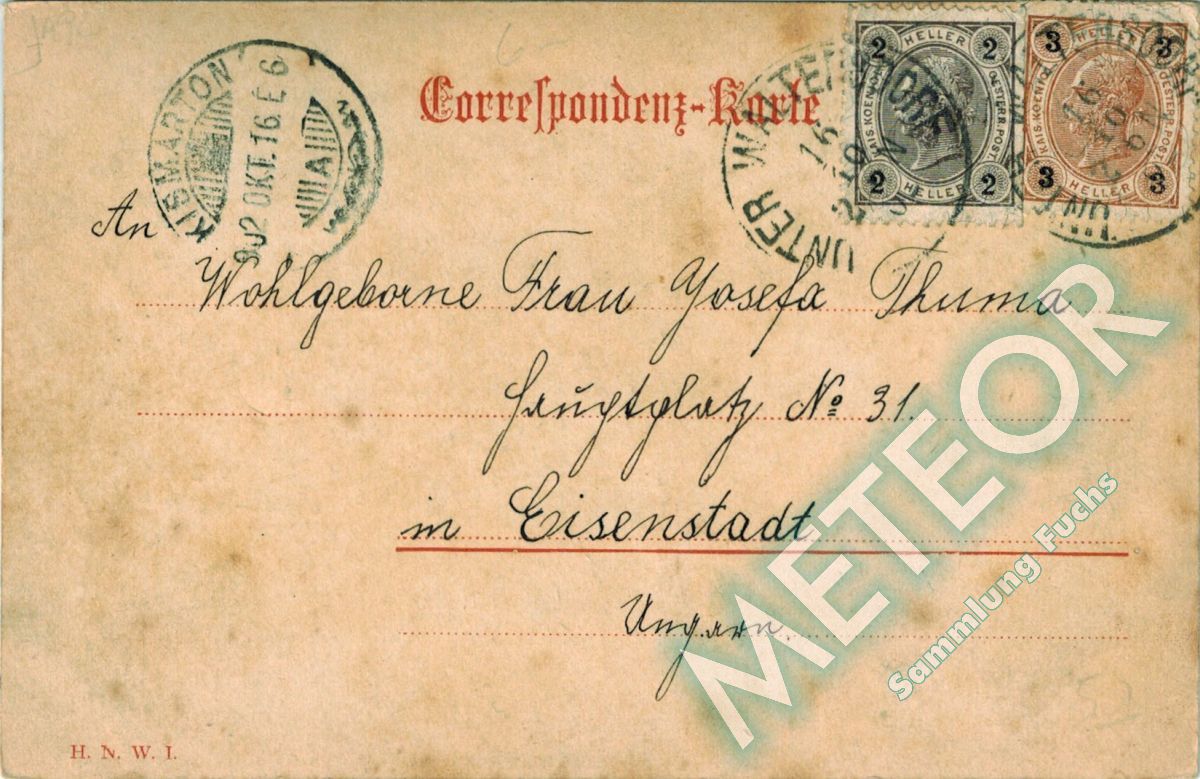 Correspondenz-Karte
KISMARTON
902 OKT. 16. E 6
A
UNTER WALTERSDORF
16
10
2
2
HELLER
2
2
HELLER
2
KAIS. KOENIGL.
OESTERR. POST.
3
HELLER
3
3
HELLER
3
KAIS. KOENIGL.
OESTERR. POST.
16
10
An
Wohlgeborne Frau Josefa Thuma
Hauptplatz No 31.
in Eisenstadt
Ungarn.
H. N. W. I.
METEOR
Sammlung Fuchs